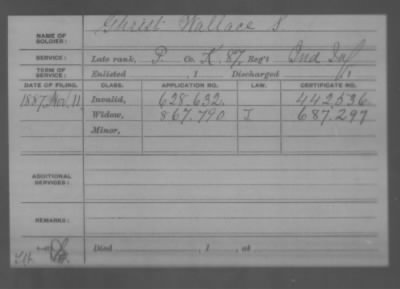 NAME OF SOLDIER: Ghrist Wallace S.
SERVICE: Late rank, P. Co. K. 87, Reg't Ind Inf
TERM OF SERVICE: Enlisted , 1 Discharged , 1
DATE OF FILING. CLASS. APPLICATION NO. LAW. CERTIFICATE NO.
1887, Nov. 11 Invalid, 628.632. 442.536.
Widow, 867.790 I 687.297
Minor,
ADDITIONAL SERVICES:
REMARKS:
Died , 1 , at